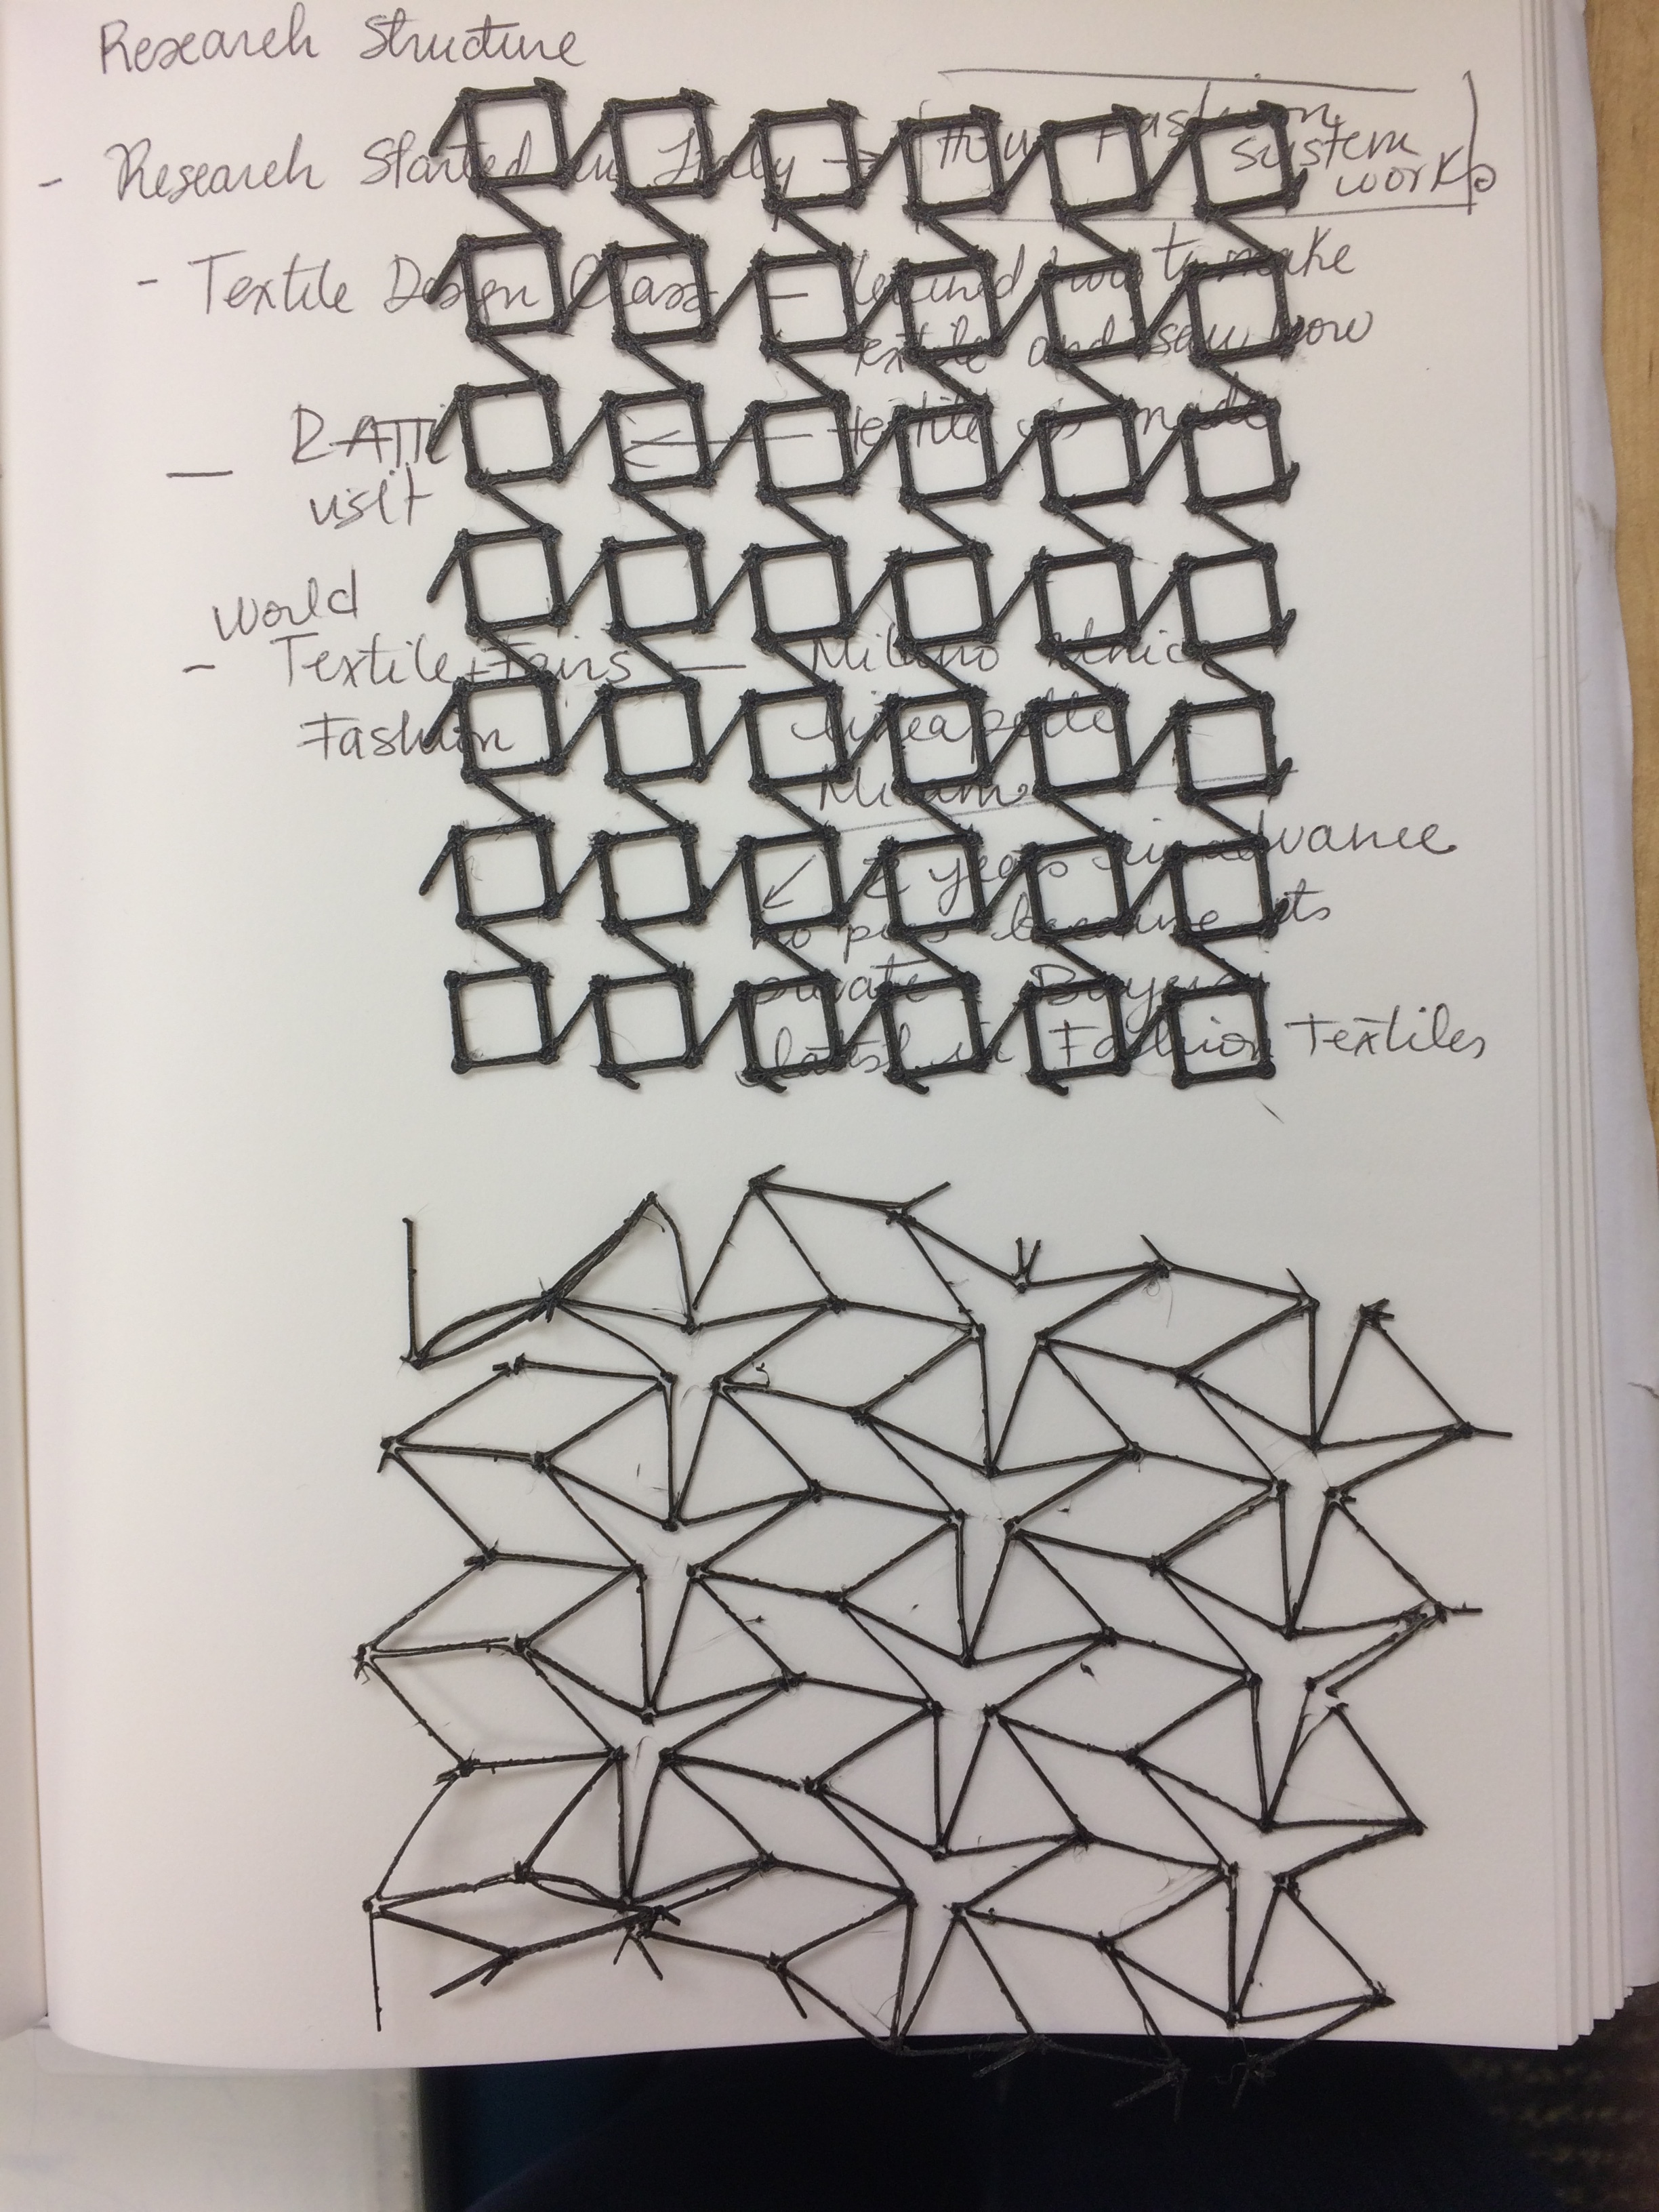 Research Structure
- Research Started in Italy → how Fashion
system
works
- Textile Design Class — learned how to make
textile and saw how
textile is made
— RATTI ←
visit
World
- Textile + Fairs — Milano Unica
Fashion Lineapelle
Milano
2 years in advance
no pics because its
private Buyers
latest in Fashion Textiles